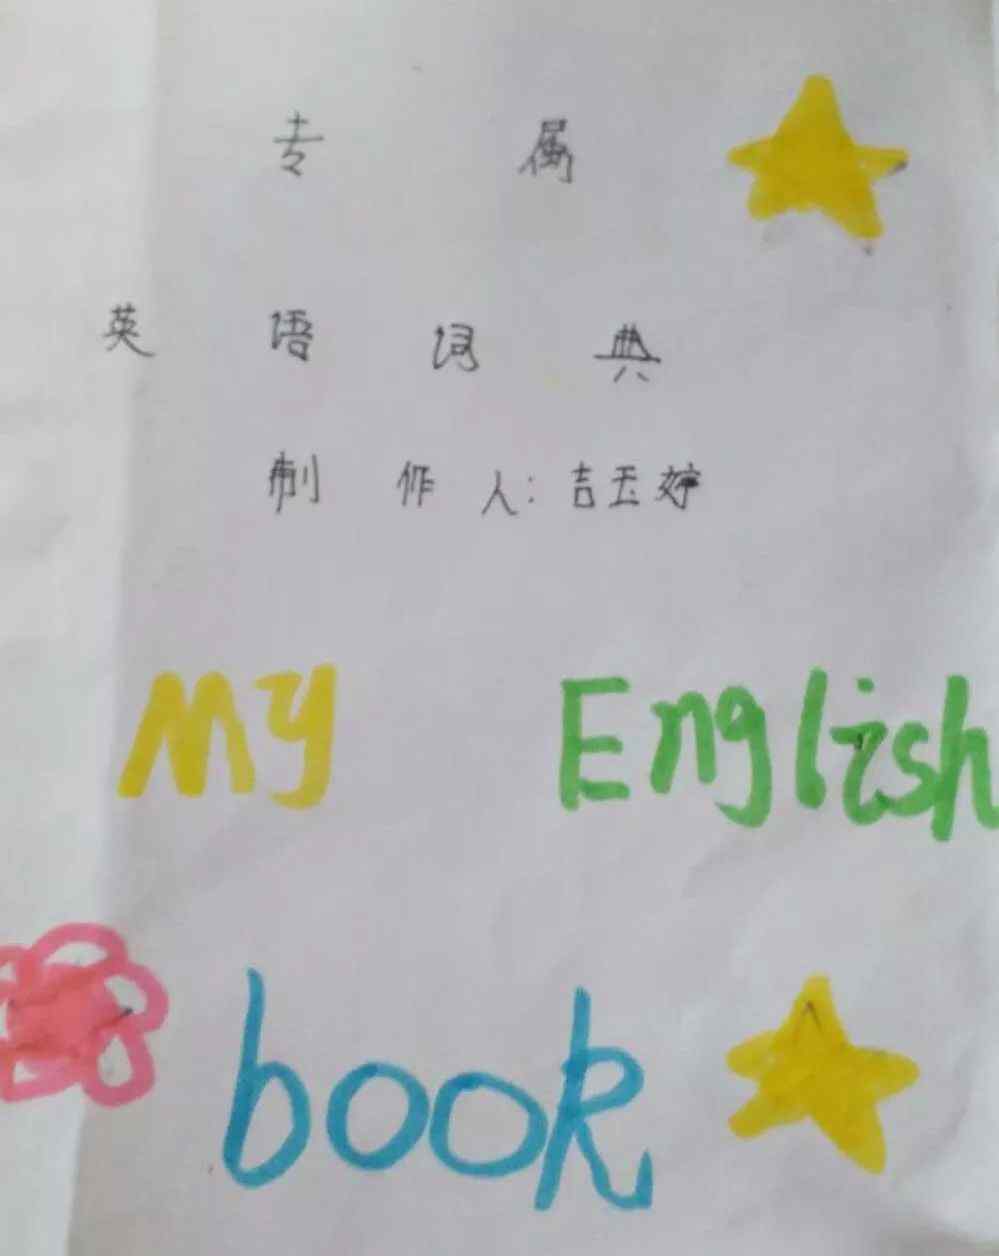 专属
英语词典
制作人:吉玉婷
My English
book